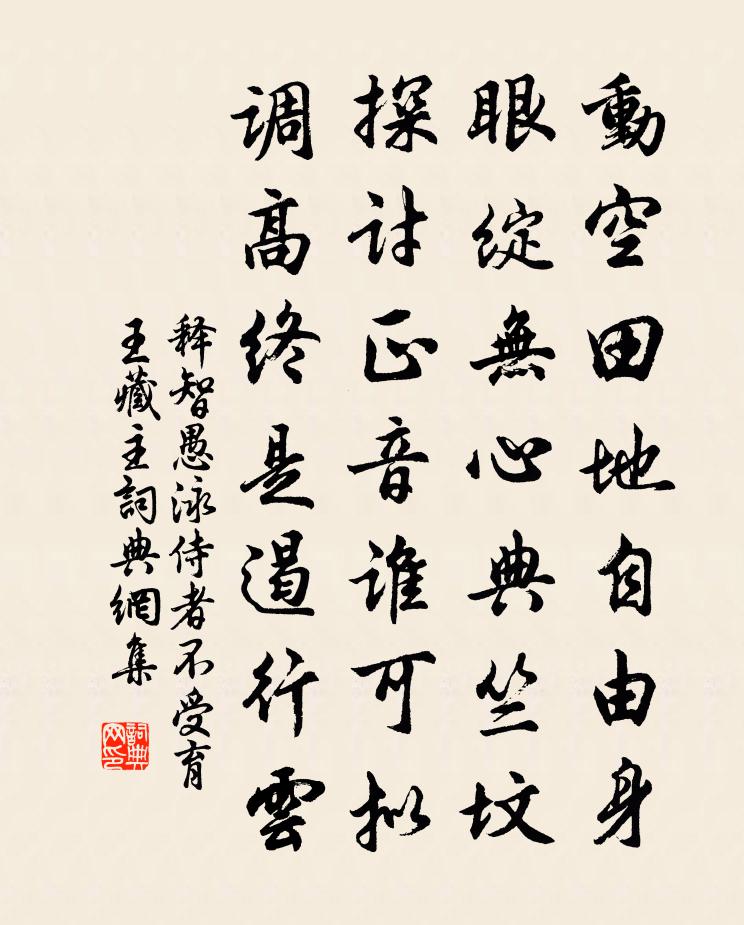 動空田地自由身
眼綻無心典竺坟
探讨正音谁可拟
调高終是遏行雲
释智愚泳侍者不受育
王藏主詞典網集
詞典网印